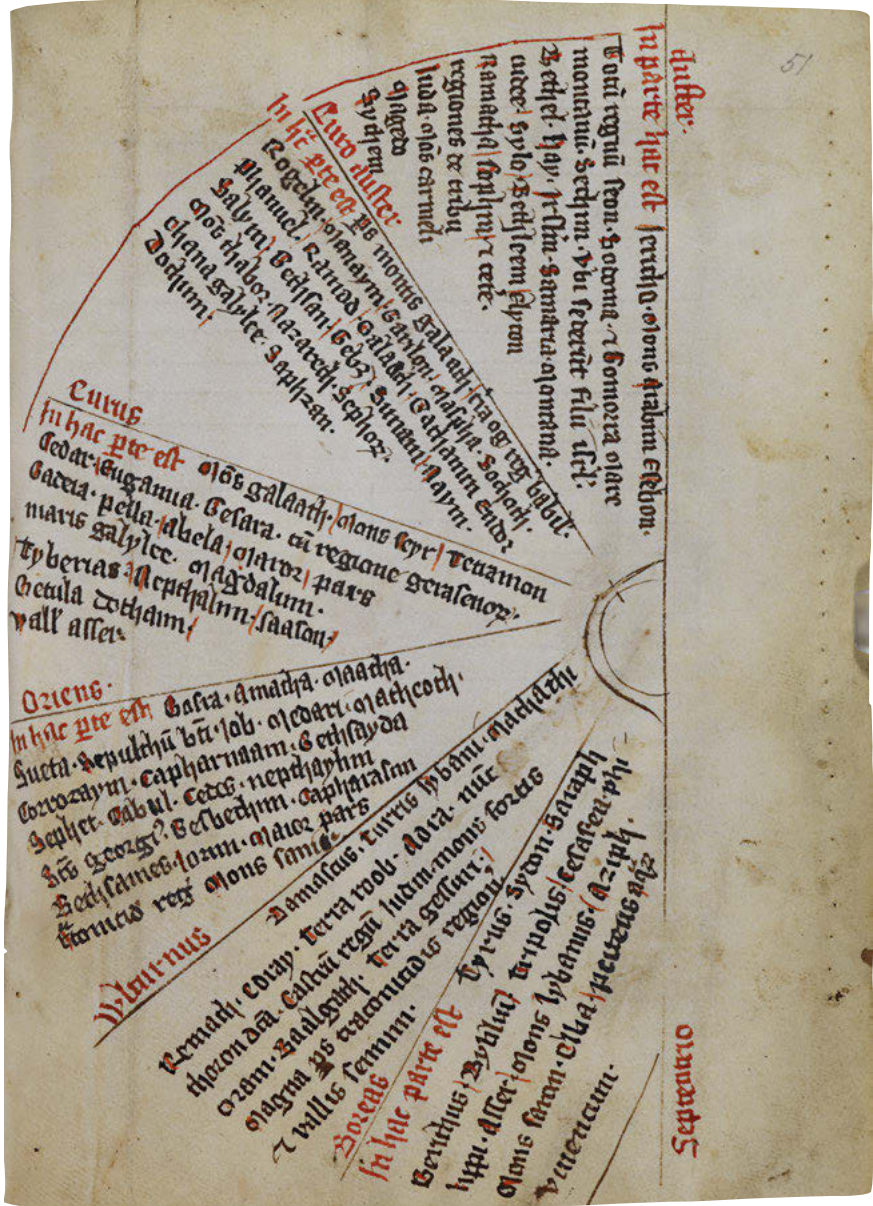 51
Auster.
In parte hac est Jericho. Mons Nabim Esebon.
Totū regnū seon. Sodoma. ⁊ Gomorra Mare
montanū. Sechim. Vbi sederūt filii isrl'.
Bethel. Hay. Jrslm. Samaria. Montana.
iudee. Sylo. Bethleem Elyton
Ramatha sophim ⁊ cete.
regiones de tribu
Juda. Mōs carmeli
Magedo
Sychem
Euro Auster.
In hc pte est ps montis Galaath, Og reg babil.
Rogelim. Manaym. Maspha. Sochoth.
Phanuel. Ramod. Galaath. Endor
Salym. Bethsan. Gebz. Sunam. Naym.
Mōs thabor. Nazareth. Sephor.
Chana galylee. Saphran.
Dochum.
Eurus
In hac pte est Mōs galaath. Mons seyr. Teuamon
Cedar. Suganna. Gesara. cū regione gerasenor.
Gadera. Pella. Abela. Maror. pars
maris galylee. Magdalum.
Tyberias. Nepthalim. Saason.
Betula dothaim.
vall' asser.
Oriens.
In hac pte est Bosra. Amatha. Maatha.
Sueta. Sepulchū bti Job. Medari. Mathcoth.
Corrozaym. Capharnaam. Bethsayda
Sephet. Cabul. Cetes. nepthaylim
Scs georgi. Belbechim. Capharasim
Bethsames. Jorim. Maior pars
tconitid reg Mons sanir.
Wlturnus
Damascus. Turris lybani. Machathi
Remach. Coray. Terra roob. Adra. nūc
thoron dca. Castrū regiū hudim. mons fortis
Oram. Baalgath. Terra gessuri.
Magna ps traconitidis region,
⁊ vallis sennim.
Boreas
In hac parte est Tyrus. Sydon. Saraph
Berithus. Byblium. Tripolis. Cesarea phi
lippi. Asser. Mons lybanus. Aziph.
Mons saron. Elba. puteus aqr
viuencium.
Septemtrio